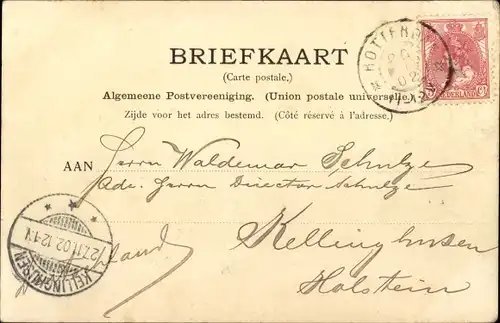 BRIEFKAART
(Carte postale.)
Algemeene Postvereeniging. (Union postale universelle.)
Zijde voor het adres bestemd. (Côté réservé à l'adresse.)
AAN Herrn Waldemar Schulze
Adr. Herrn Director Schulze
Kellinghusen
Holstein
NEDERLAND
27.11.02.12-1.V.
KELLINGHUSEN